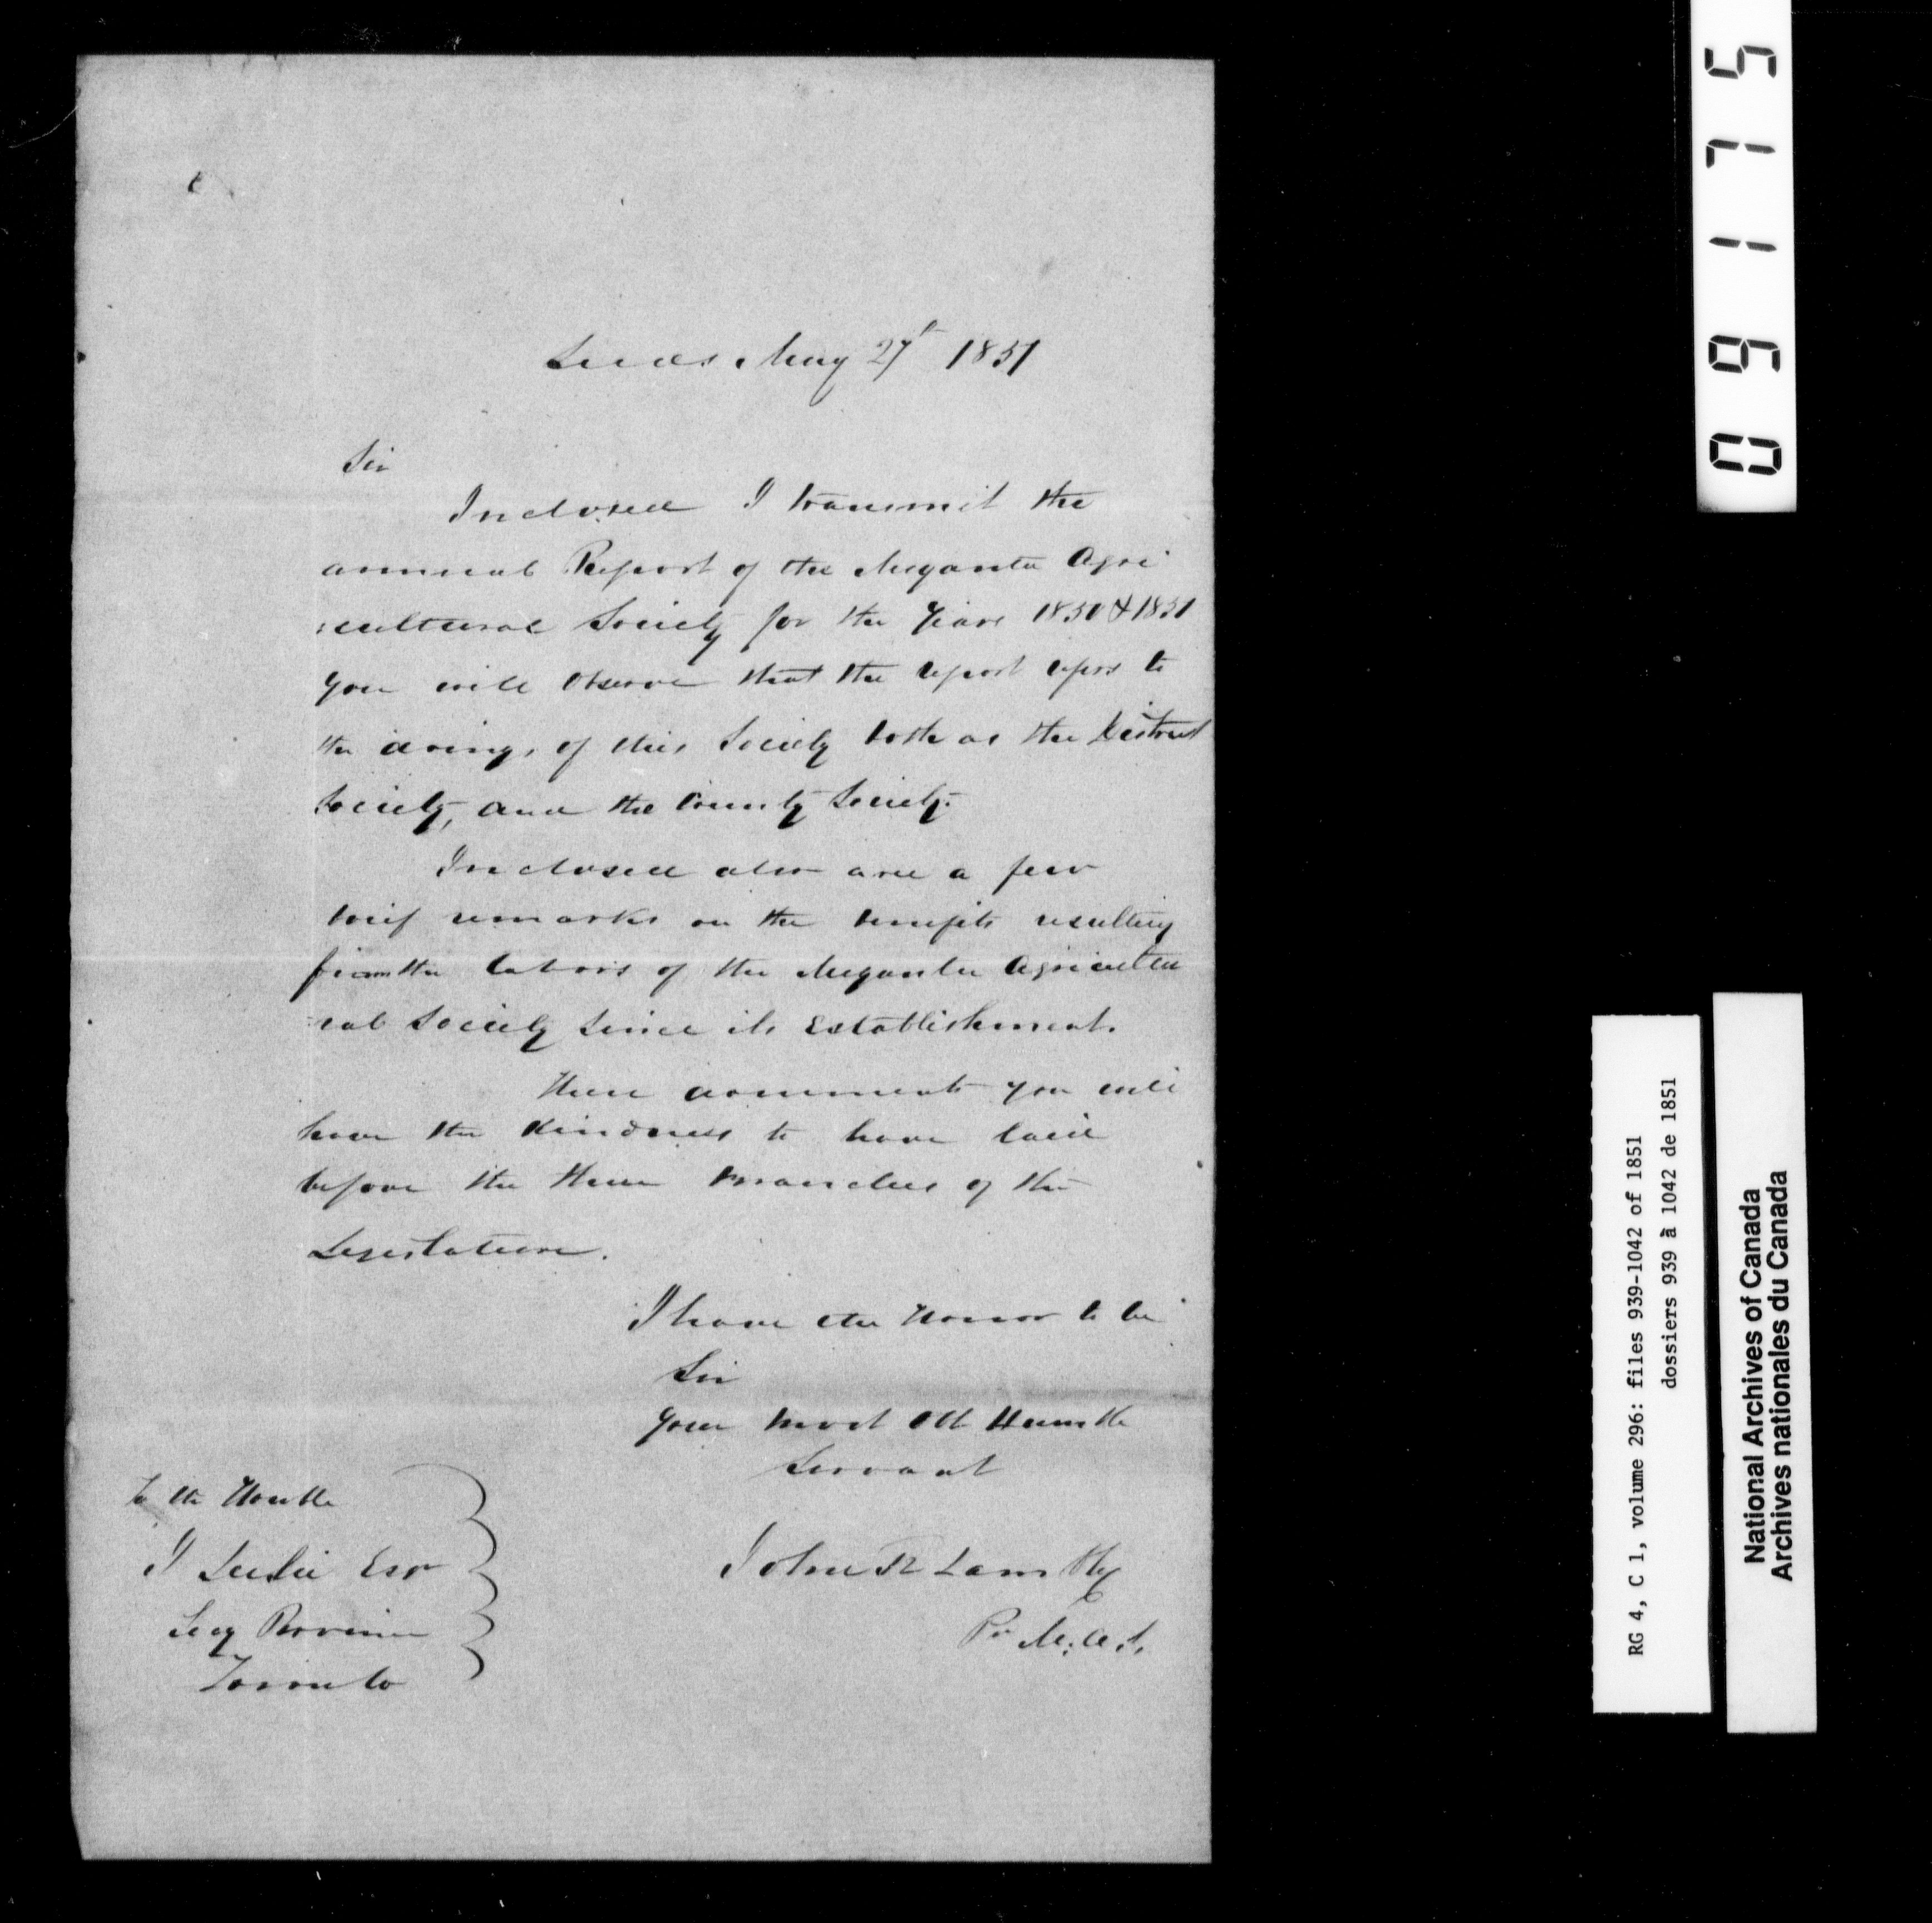 Leeds May 27th 1851
Sir
Inclosed I transmit the
annual Report of the Megantic Agri
:cultural Society for the Years 1850 & 1851
you will observe that the report refers to
the doings of this Society both as the District
Society, and the County Society.
Inclosed also are a few
brief remarks on the benefits resulting
from the labors of the Megantic Agricultu
-ral Society since its Establishment.
These documents you will
have the kindness to have laid
before the three branches of the
Legislature.
I have the Honor to be
Sir
Your most Obt Humble
Servant
John R Lambly
Pr M. A. S.
To the Honble
J Leslie Esqr
Secy Province
Toronto
091175
RG 4, C 1, volume 296: files 939-1042 of 1851
dossiers 939 à 1042 de 1851
National Archives of Canada
Archives nationales du Canada